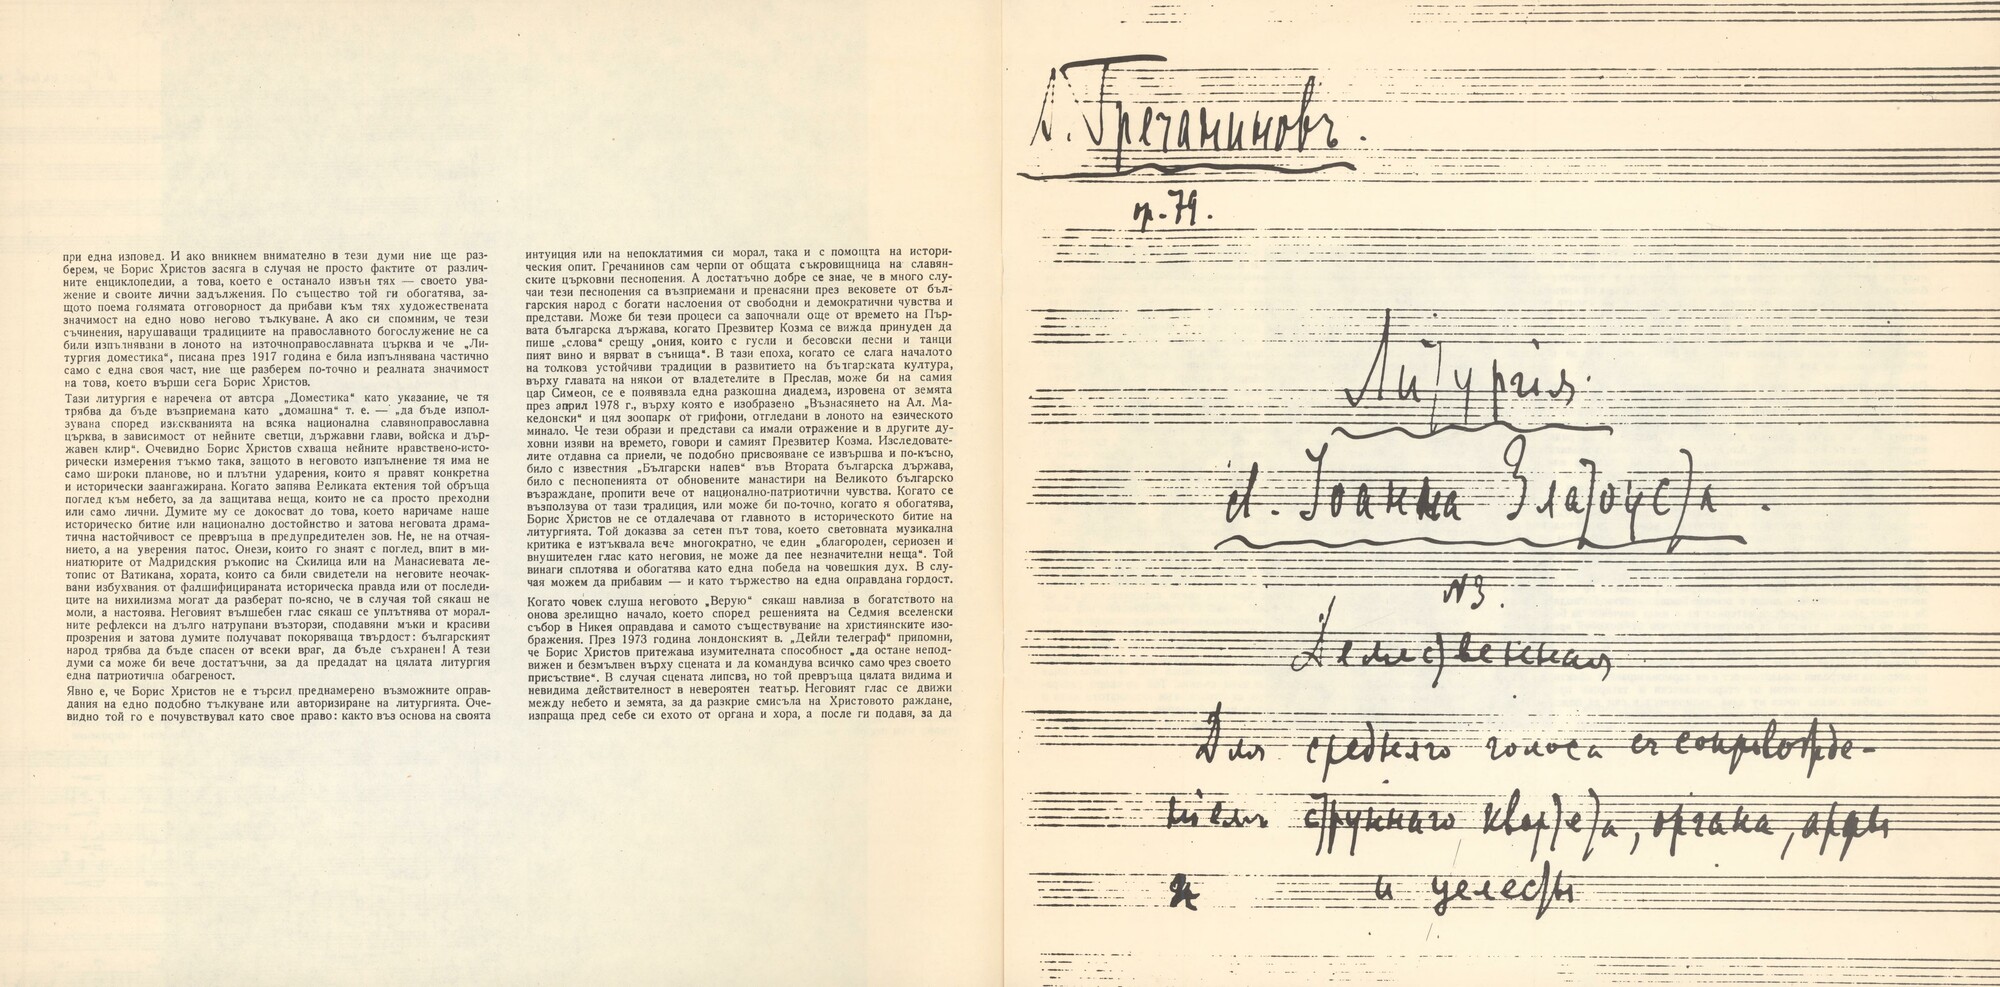 при една изповед. И ако вникнем внимателно в тези думи ние ще раз-
берем, че Борис Христов засяга в случая не просто фактите от различ-
ните енциклопедии, а това, което е останало извън тях — своето ува-
жение и своите лични задължения. По същество той ги обогатява, за-
щото поема голямата отговорност да прибави към тях художествената
значимост на едно ново и негово тълкуване. А ако си спомним, че тези
съчинения, нарушаващи традициите на православното богослужение не са
били изпълнявани в лоното на източноправославната църква и че „Ли-
тургия доместика“, писана през 1917 година е била изпълнявана частично
само с една своя част, ние ще разберем по-точно и реалната значимост
на това, което върши сега Борис Христов.
Тази литургия е наречена от автора „Доместика“ като указание, че тя
трябва да бъде възприемана като „домашна“ т. е. — „да бъде изпол-
зувана според изискванията на всяка национална славяноправославна
църква, в зависимост от нейните светци, държавни глави, войска и дър-
жавен клир“. Очевидно Борис Христов схваща нейните нравствено-исто-
рически измерения тъкмо така, защото в неговото изпълнение тя има не
само широки планове, но и плътни ударения, които я правят конкретна
и исторически заангажирана. Когато запява Великата ектения той обръща
поглед към небето, за да защитава неща, които не са просто преходни
или само лични. Думите му се докосват до това, което наричаме наше
историческо битие или национално достойнство и затова неговата драма-
тична настойчивост се превръща в предупредителен зов. Не, не на отчая-
нието, а на уверения патос. Онези, които го знаят с поглед, впит в ми-
ниатюрите от Мадридския ръкопис на Скилица или на Манасиевата ле-
топис от Ватикана, хората, които са били свидетели на неговите неочак-
вани избухвания от фалшифицираната историческа правда или от последи-
ците на нихилизма могат да разберат по-ясно, че в случая той сякаш не
моли, а настоява. Неговият вълшебен глас сякаш се уплътнява от морал-
ните рефлекси на дълго натрупани възторзи, сподавяни мъки и красиви
прозрения и затова думите получават покоряваща твърдост: българският
народ трябва да бъде спасен от всеки враг, да бъде съхранен! А тези
думи са може би вече достатъчни, за да предадат на цялата литургия
една патриотична обагреност.
Явно е, че Борис Христов не е търсил преднамерено възможните оправ-
дания на едно подобно тълкуване или авторизиране на литургията. Оче-
видно той го е почувствувал като свое право: както въз основа на своята
интуиция или на непоклатимия си морал, така и с помощта на истори-
ческия опит. Гречанинов сам черпи от общата съкровищница на славян-
ските църковни песнопения. А достатъчно добре се знае, че в много слу-
чаи тези песнопения са възприемани и пренасяни през вековете от бъл-
гарския народ с богати наслоения от свободни и демократични чувства и
представи. Може би тези процеси са започнали още от времето на Пър-
вата българска държава, когато Презвитер Козма се вижда принуден да
пише „слова“ срещу „ония, които с гусли и бесовски песни и танци
пият вино и вярват в сънища“. В тази епоха, когато се слага началото
на толкова устойчиви традиции в развитието на българската култура,
върху главата на някои от владетелите в Преслав, може би на самия
цар Симеон, се е появявала една разкошна диадема, изровена от земята
през април 1978 г., върху която е изобразено „Възнасянето на Ал. Ма-
кедонски“ и цял зоопарк от грифони, отгледани в лоното на езическото
минало. Че тези образи и представи са имали отражение и в другите ду-
ховни изяви на времето, говори и самият Презвитер Козма. Изследовате-
лите отдавна са приели, че подобно присвояване се извършва и по-късно,
било с известния „Български напев“ във Втората българска държава,
било с песнопенията от обновените манастири на Великото българско
възраждане, пропити вече от национално-патриотични чувства. Когато се
възползува от тази традиция, или може би по-точно, когато я обогатява,
Борис Христов не се отдалечава от главното в историческото битие на
литургията. Той доказва за сетен път това, което световната музикална
критика е изтъквала вече многократно, че един „благороден, сериозен и
внушителен глас като неговия, не може да пее незначителни неща“. Той
винаги сплотява и обогатява като една победа на човешкия дух. В слу-
чая можем да прибавим — и като тържество на една оправдана гордост.
Когато човек слуша неговото „Верую“ сякаш навлиза в богатството на
онова зрелищно начало, което според решенията на Седмия вселенски
събор в Никея оправдава и самото съществуване на християнските изо-
бражения. През 1973 година лондонският в. „Дейли телеграф“ припомни,
че Борис Христов притежава изумителната способност „да остане непод-
вижен и безмълвен върху сцената и да командува всичко само чрез своето
присъствие“. В случая сцената липсва, но той превръща цялата видима и
невидима действителност в невероятен театър. Неговият глас се движи
между небето и земята, за да разкрие смисъла на Христовото раждане,
изпраща пред себе си ехото от органа и хора, а после ги подавя, за да
А. Гречаниновъ.
op. 79.
Литургия
св. Іоанна Златоуста.
№3.
Демественная
Для средняго голоса съ сопровожде-
ніемъ струннаго квартета, органа, арфы
и целесты